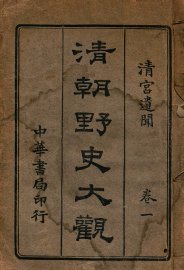 清宮遺聞 卷一
清朝野史大觀
中華書局印行